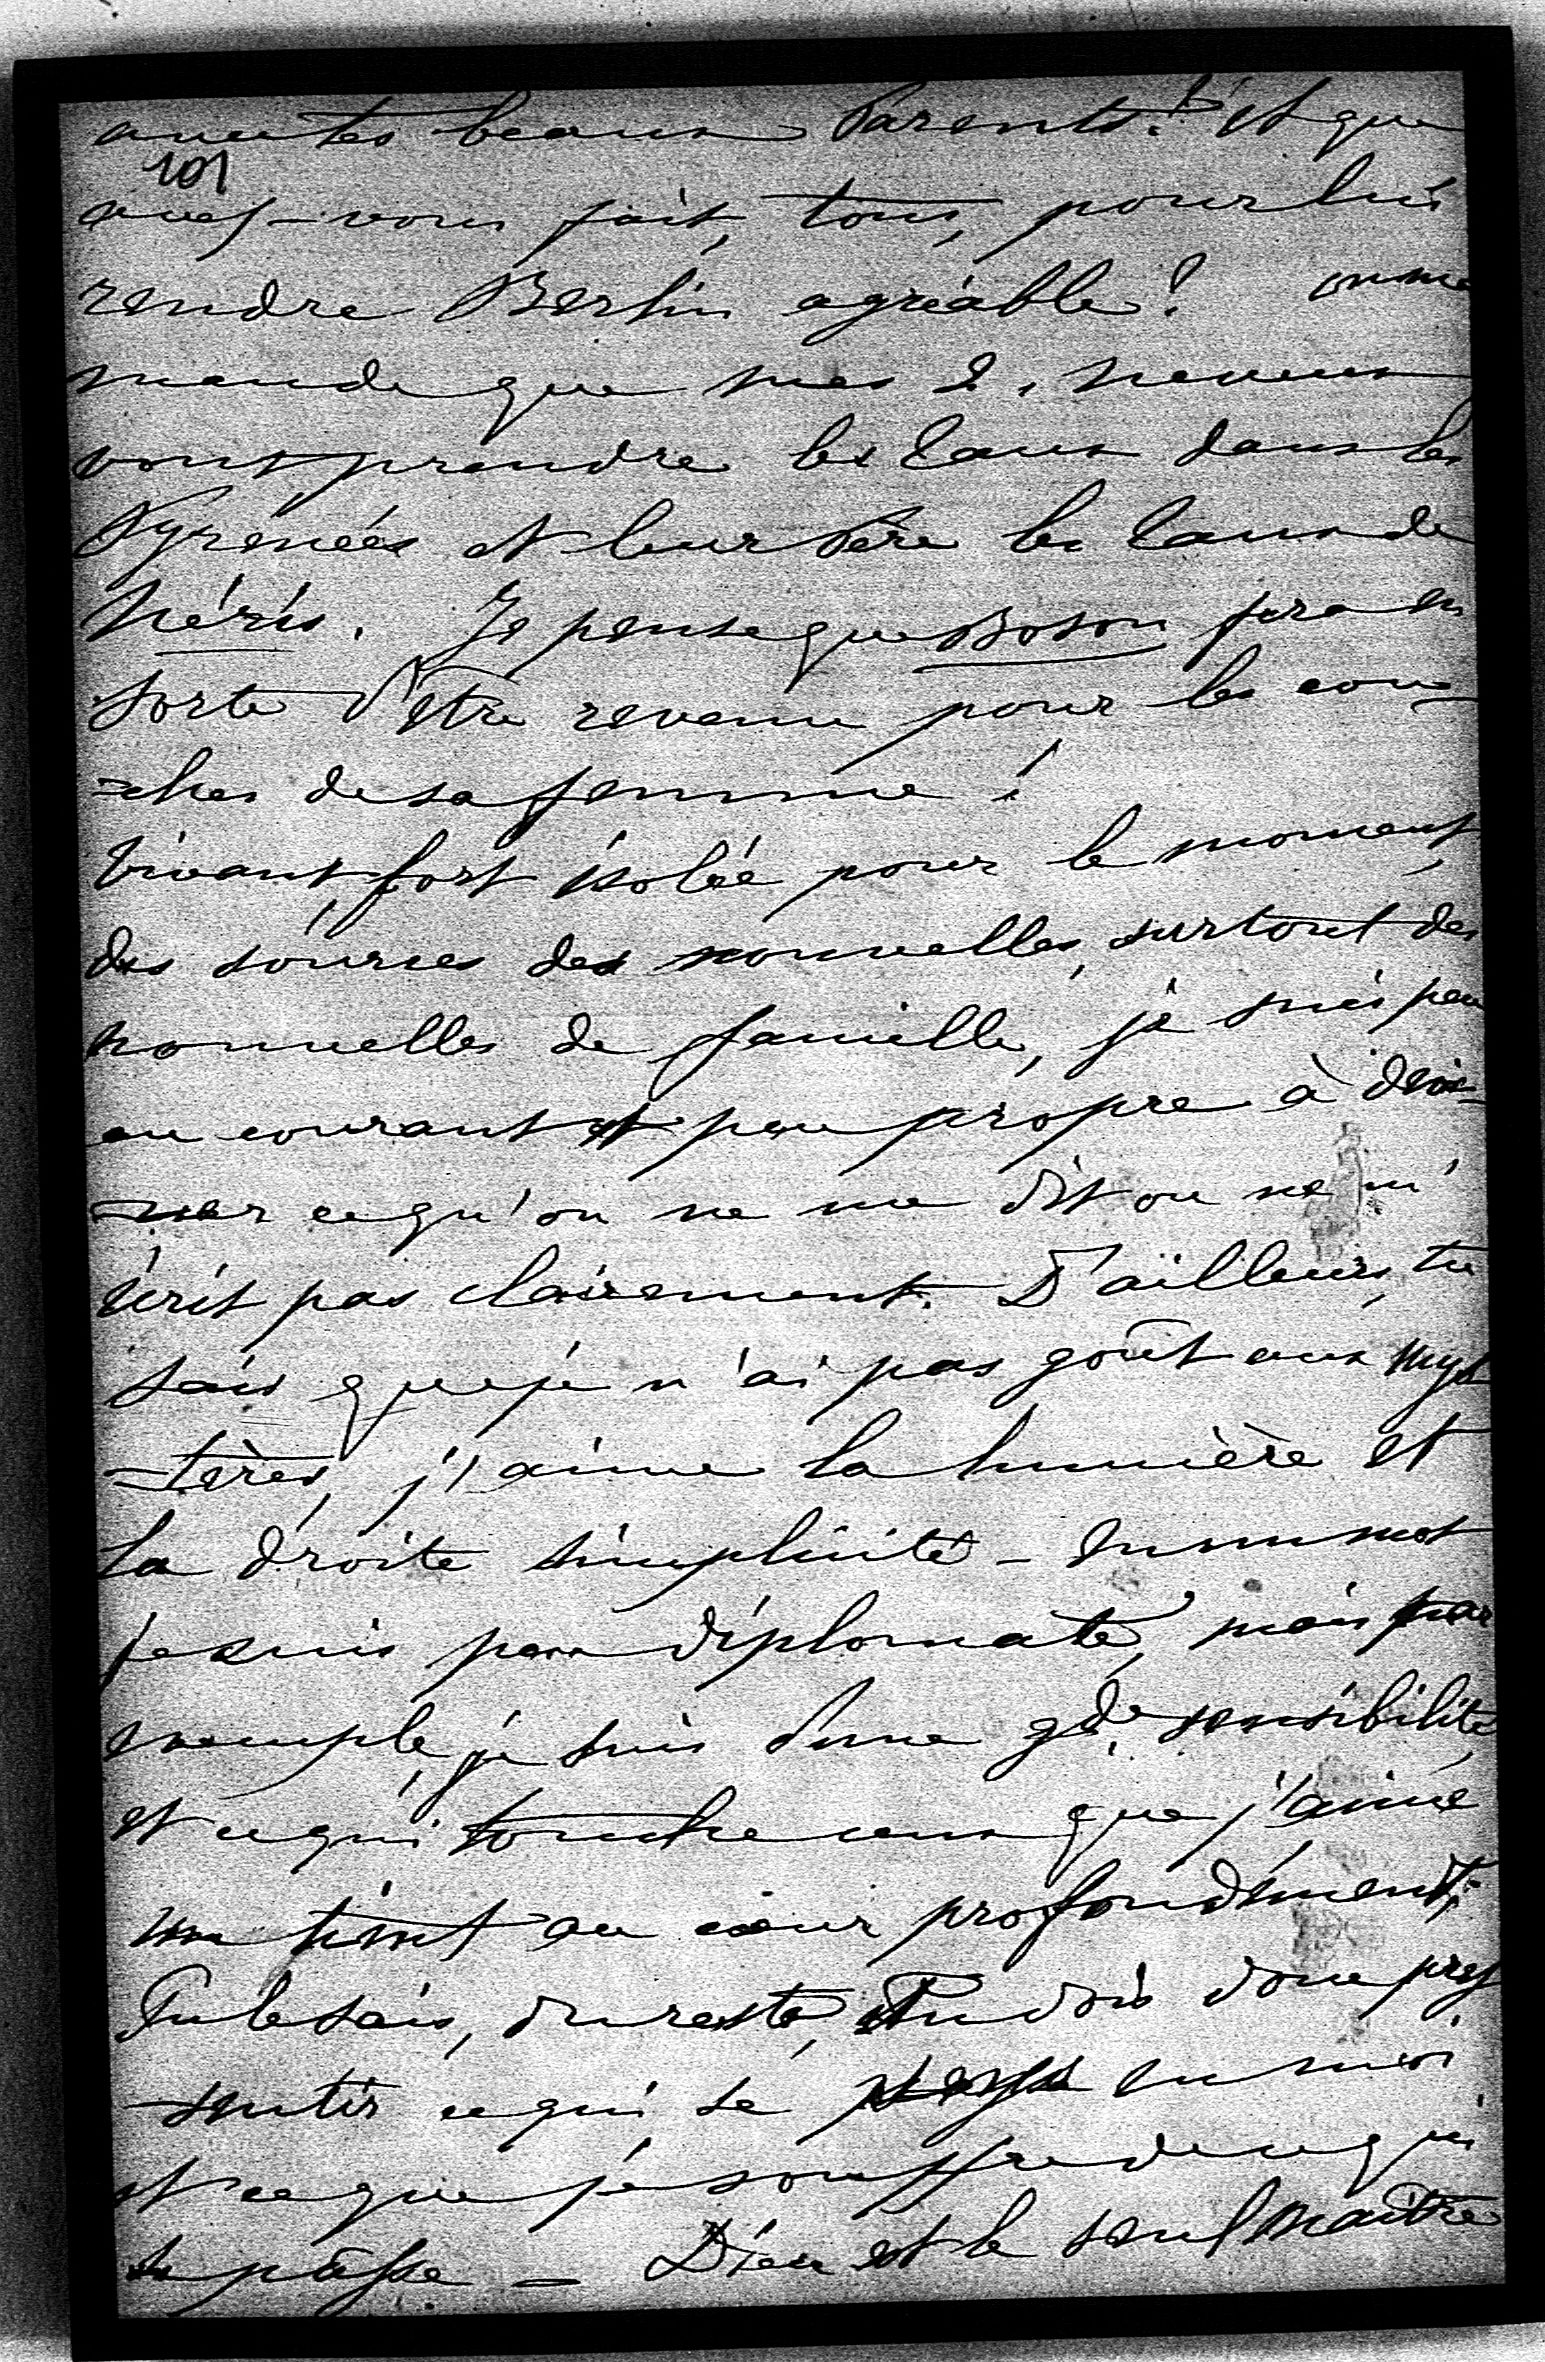 avec tes beaux Parents? Et que
101
avez-vous fait, tous, pour lui
rendre Berlin agréable? on me
mande que mes 2. neveux
vont prendre les Eaux dans les
Pyrenées et leur Père les Eaux de
Néris. Je pense que Boson fera en
sorte d'être revenu pour les cou-
=ches de sa femme!
Vivant fort isolée pour le moment,
des sources des nouvelles, surtout des
nouvelles de famille, je suis peu
au courant et peu propre à devi-
-ner ce qu'on ne me dit ou ne m'
écrit pas clairement. D'ailleurs, tu
sais que je n'ai pas goût aux mys
=tères, j'aime la lumière et
la droite simplicité - En un mot
je suis peu diplomate, mais par
exemple, je suis d'une gde sensibilité
et ce qui touche ceux que j'aime
me tient au cœur profondément.
Tu le sais, du reste, et tu dois donc pres
-sentir ce qui se passe en moi
et ce que je souffre de ce qui
se passe - Dieu est le seul maître